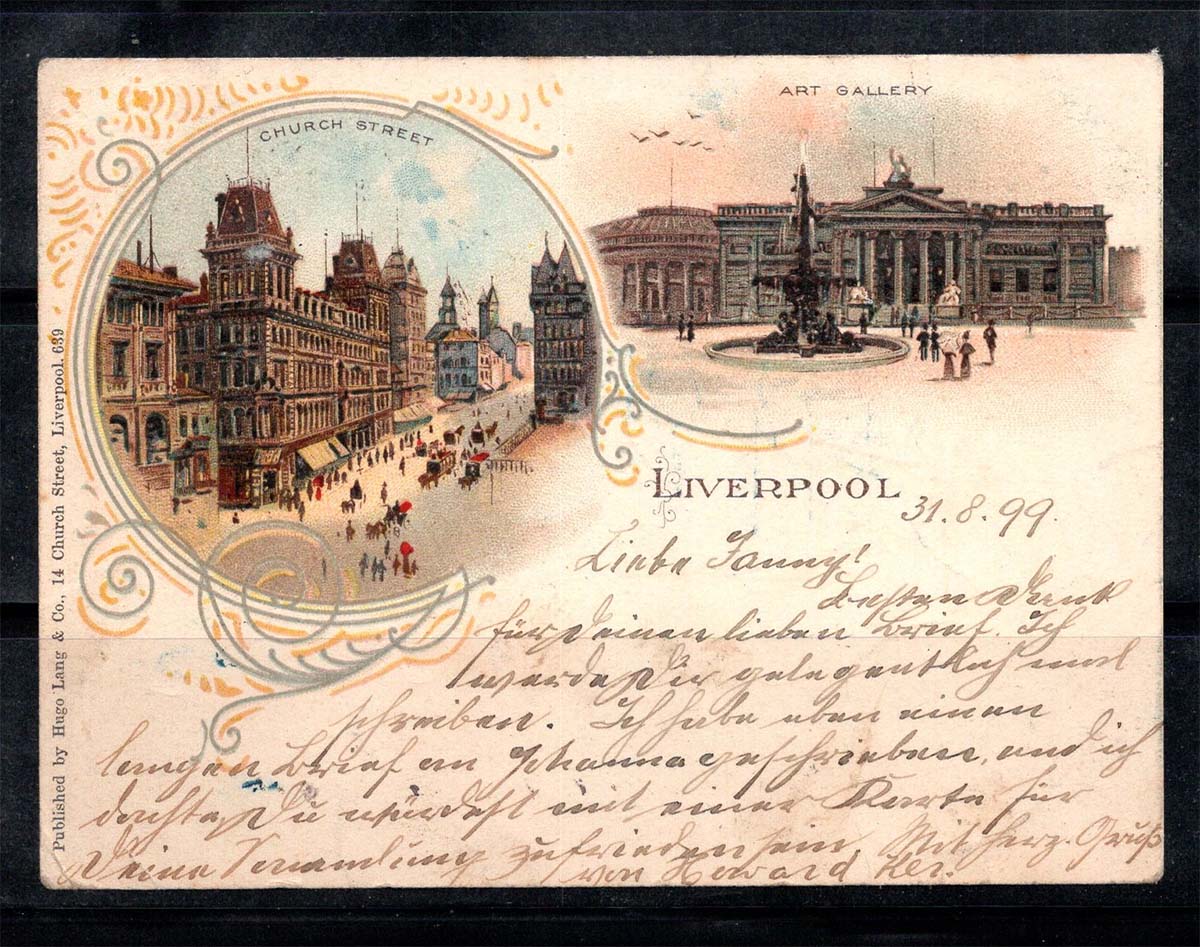 CHURCH STREET
ART GALLERY
LIVERPOOL
Published by Hugo Lang & Co., 14 Church Street, Liverpool. 639
31. 8. 99.
Liebe Fanny!
Besten Dank
für Deinen lieben Brief. Ich
werde Dir gelegentlich mal
schreiben. Ich habe eben einen
langen Brief an Johanna geschrieben, und ich
dachte, Du würdest mit einer Karte für
Deine Sammlung zufrieden sein. Mit herz. Gruß
von Howard